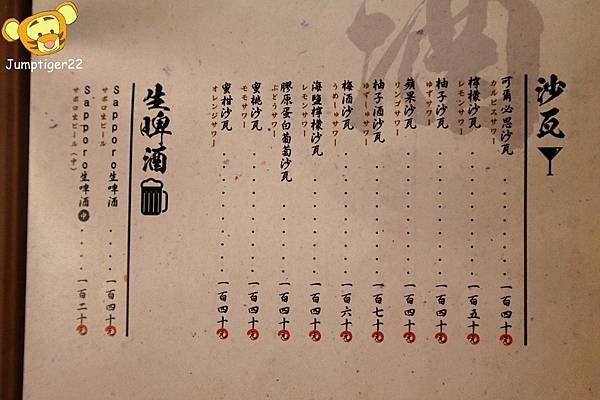 Jumptiger22
酒
沙瓦
可爾必思沙瓦.........一百四十元
カルピスサワー
檸檬沙瓦.........一百五十元
レモンサワー
柚子沙瓦.........一百四十元
ゆずサワー
蘋果沙瓦.........一百四十元
リンゴサワー
柚子酒沙瓦.........一百七十元
ゆずしゅサワー
梅酒沙瓦.........一百六十元
うめしゅサワー
海鹽檸檬沙瓦.........一百四十元
レモンサワー
膠原蛋白葡萄沙瓦.......一百四十元
ぶどうサワー
蜜桃沙瓦.........一百四十元
モモサワー
蜜柑沙瓦.........一百四十元
オレンジサワー
生啤酒
Sapporo生啤酒.....一百四十元
サポロ生ビール
Sapporo生啤酒中....一百二十元
サポロ生ビール(中)